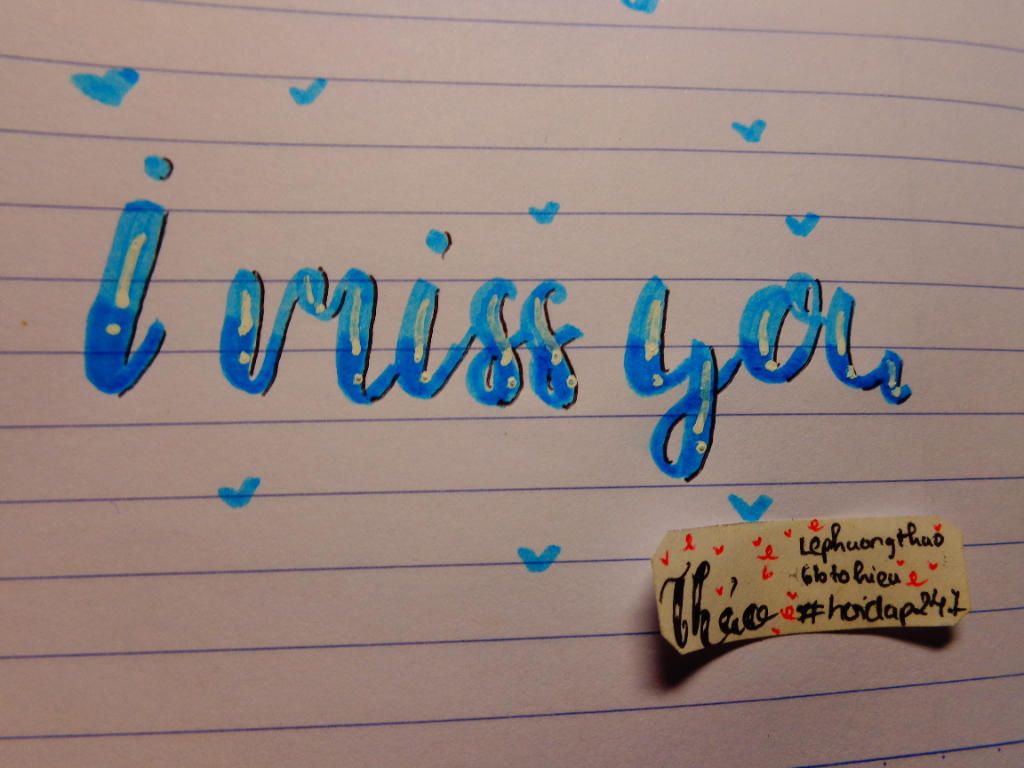 i miss you
Thảo
Lephuongthao
6b tohieu
#hoidap247